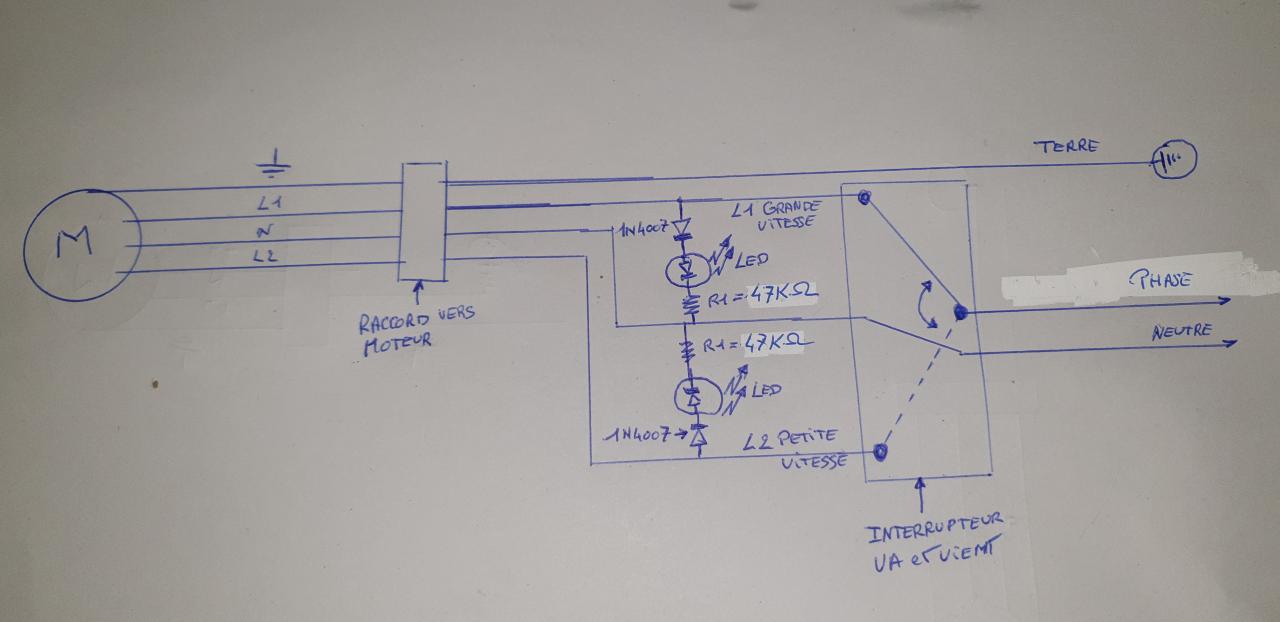 TERRE
L1
N
L2
M
1N4007
L1 GRANDE
VITESSE
LED
R1 = 47KΩ
PHASE
RACCORD VERS
MOTEUR
NEUTRE
R1 = 47KΩ
LED
1N4007
L2 PETITE
VITESSE
INTERRUPTEUR
VA et VIENT